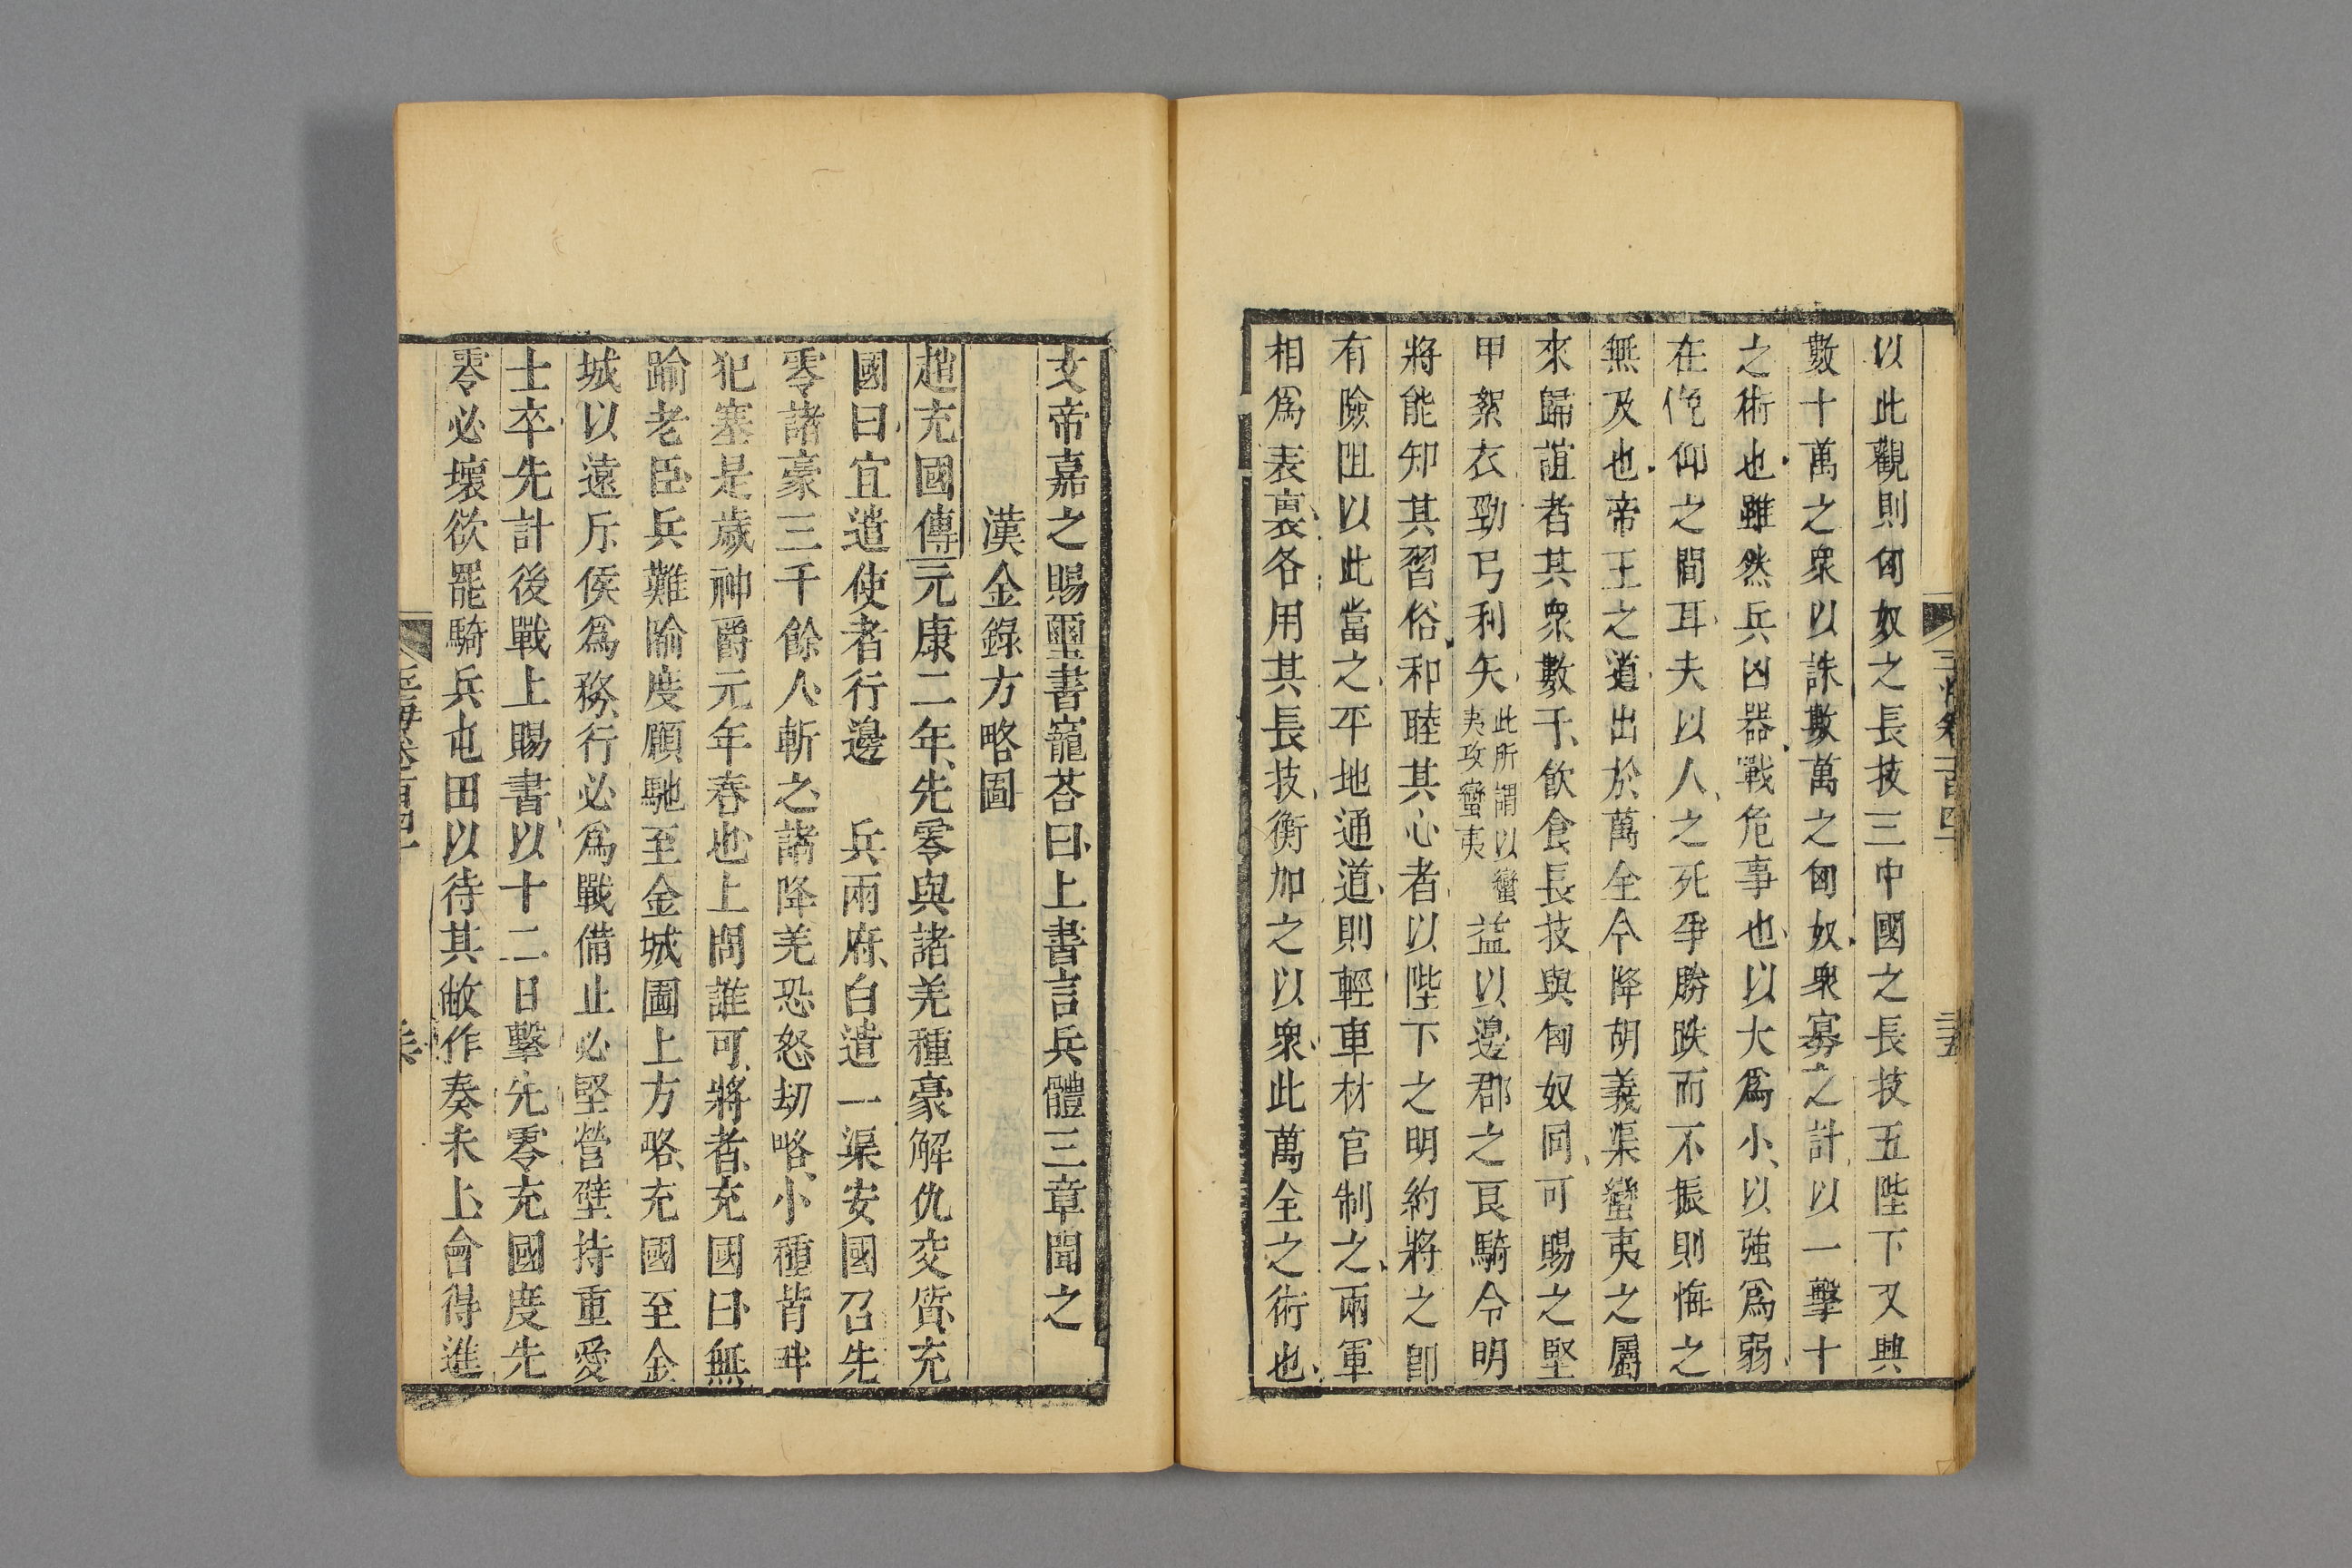 以此觀則匈奴之長技三中國之長技五陛下又興
數十萬之衆以誅數萬之匈奴衆寡之計以一擊十
之術也雖然兵凶器戰危事也以大爲小以強爲弱
在俛仰之間耳夫以人之死爭勝跌而不振則悔之
無及也帝王之道出於萬全今降胡義渠蠻夷之屬
來歸誼者其衆數千飲食長技與匈奴同可賜之堅
甲絮衣勁弓利矢此所謂以蠻夷攻蠻夷益以邊郡之良騎令明
將能知其習俗和睦其心者以陛下之明約將之卽
有險阻以此當之平地通道則輕車材官制之兩軍
相爲表裏各用其長技衡加之以衆此萬全之術也
文帝嘉之賜璽書寵荅曰上書言兵體三章聞之
漢金錄方略圖
趙充國傳元康二年先零與諸羌種豪解仇交質充
國曰宜遣使者行邊 兵兩府白遣一渠安國召先
零諸豪三千餘人斬之諸降羌恐怒劫略小種背畔
犯塞是歲神爵元年春也上問誰可將者充國曰無
踰老臣兵難隃度願馳至金城圖上方略充國至金
城以遠斥侯爲務行必爲戰備止必堅營壁持重愛
士卒先計後戰上賜書以十二日擊先零充國度先
零必壞欲罷騎兵屯田以待其敝作奏未上會得進